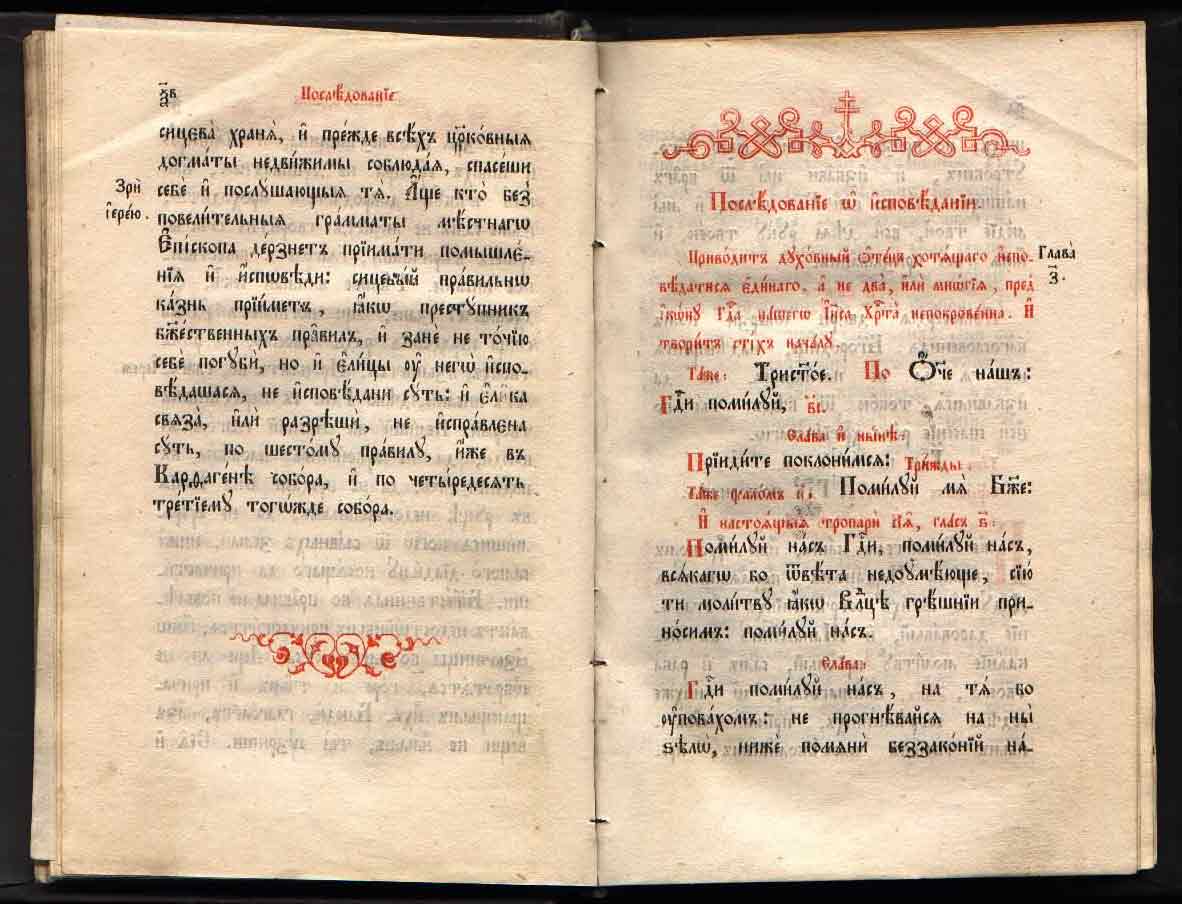 Послѣдованїе
сицева̀ хранѧ̀, и҆ пре́жде всѣ́хъ цр҃ко́вныѧ
догма́ты недви́жимы соблюда́ѧ, спасе́ши
себѐ и҆ послу́шающыѧ тѧ̀. А҆́ще кто̀ без̾
Зрѝ
і҆ере́ю.
повели́тельныѧ грамматы мѣ́стнагѡ
Е҆пі́скопа де́рзнетъ прїима́ти помышле́-
нїѧ и҆ и҆спѡ́вѣди: сицевы́й пра́вильнѡ
ка́знь прїи́метъ, ꙗ҆́кѡ престꙋ́пник
бж҃е́ственныхъ пра́вилъ, и҆ занѐ не то́чїю
себѐ погꙋбѝ, но и҆ є҆ли́цы ᲂу҆ негѡ̀ и҆спо-
вѣ́дашасѧ, не и҆сповѣ́дани сꙋ́ть: и҆ є҆ли́ка
свѧза̀, и҆лѝ разрѣшѝ, не и҆спра́влена
сꙋ́ть, по шесто́мꙋ пра́вилꙋ, и҆́же въ
Карѳаге́нѣ собо́ра, и҆ по четы́редесѧть
тре́тїемꙋ тогѡ́жде собо́ра.
Послѣ́дованїе ѡ҆ и҆сповѣ́данїи.
Приво́дитъ дꙋхо́вный ѻ҆те́цъ хотѧ́щаго и҆спо-
вѣ́датисѧ є҆ди́наго. а҆ не два̀, и҆лѝ мнѡ́гїѧ, пред̾
і҆ко́нꙋ гд҇а на́шегѡ і҆и҃са хр҇та̀ непокрове́нна. И҆
твори́тъ сті́хъ нача́лꙋ.
Глава̀
з҃.
Та́же: Трист҃о́е. По Ѻ҆́ч҃е на́шъ:
Гд҇и поми́лꙋй, в҃і.
Сла́ва и҆ ны́нѣ:
Прїиди́те поклони́мсѧ: Три́жды.
Та́же ѱало́мъ н҃: Поми́лꙋй мѧ̀ Бж҃е:
И҆ настоѧ́щыѧ тропарѝ сїѧ̑, гла́съ ѕ҃:
Поми́лꙋй на́съ Гд҇и, поми́лꙋй на́съ,
всѧ́кагѡ бо ѿвѣ́та недоꙋмѣ́юще, сїю̀
ти моли́твꙋ ꙗ҆́кѡ влⷣцѣ грѣ́шнїи при-
но́симъ: поми́лꙋй на́съ.
Сла́ва:
Гд҇и поми́лꙋй на́съ, на тѧ́ бо
ᲂу҆пова́хомъ: не прогнѣ́вайсѧ на ны̀
ѕѣлѡ̀, нижѐ помѧнѝ беззако́нїй на́-